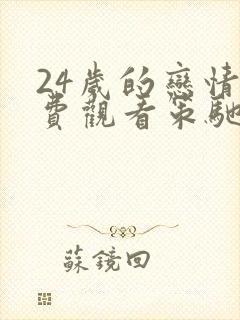 24歲的戀情
費觀看策馳
蘇鏡回